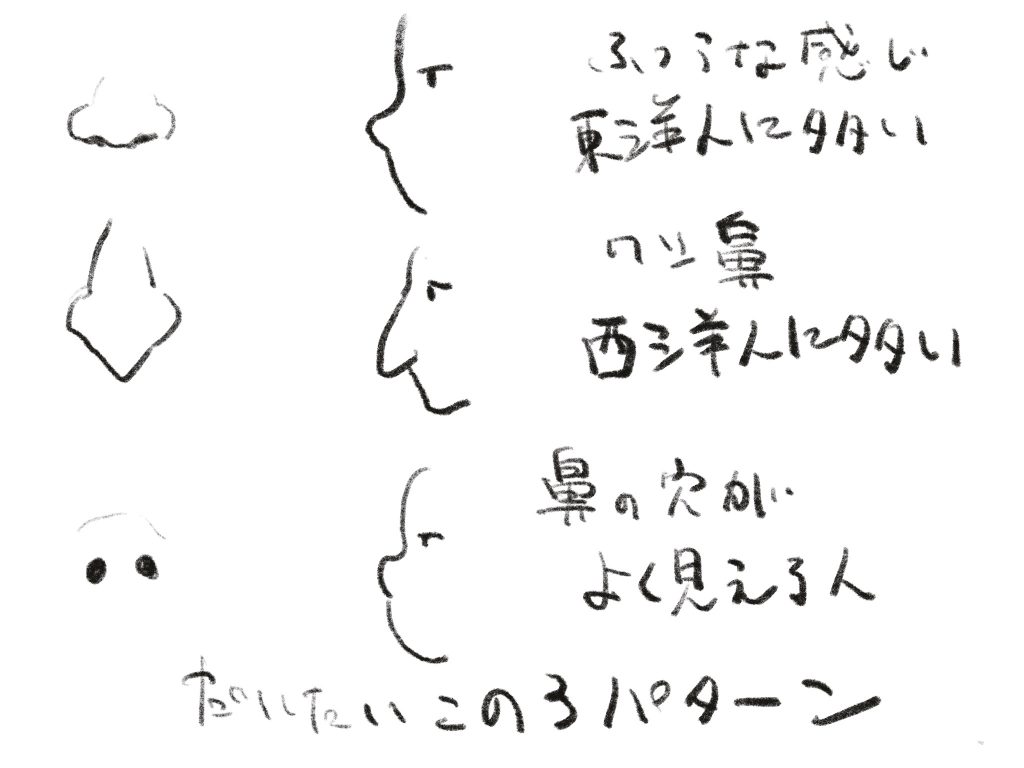 ふつうな感じ
東洋人に多い
ワシ鼻
西洋人に多い
鼻の穴が
よく見える人
だいたいこの3パターン